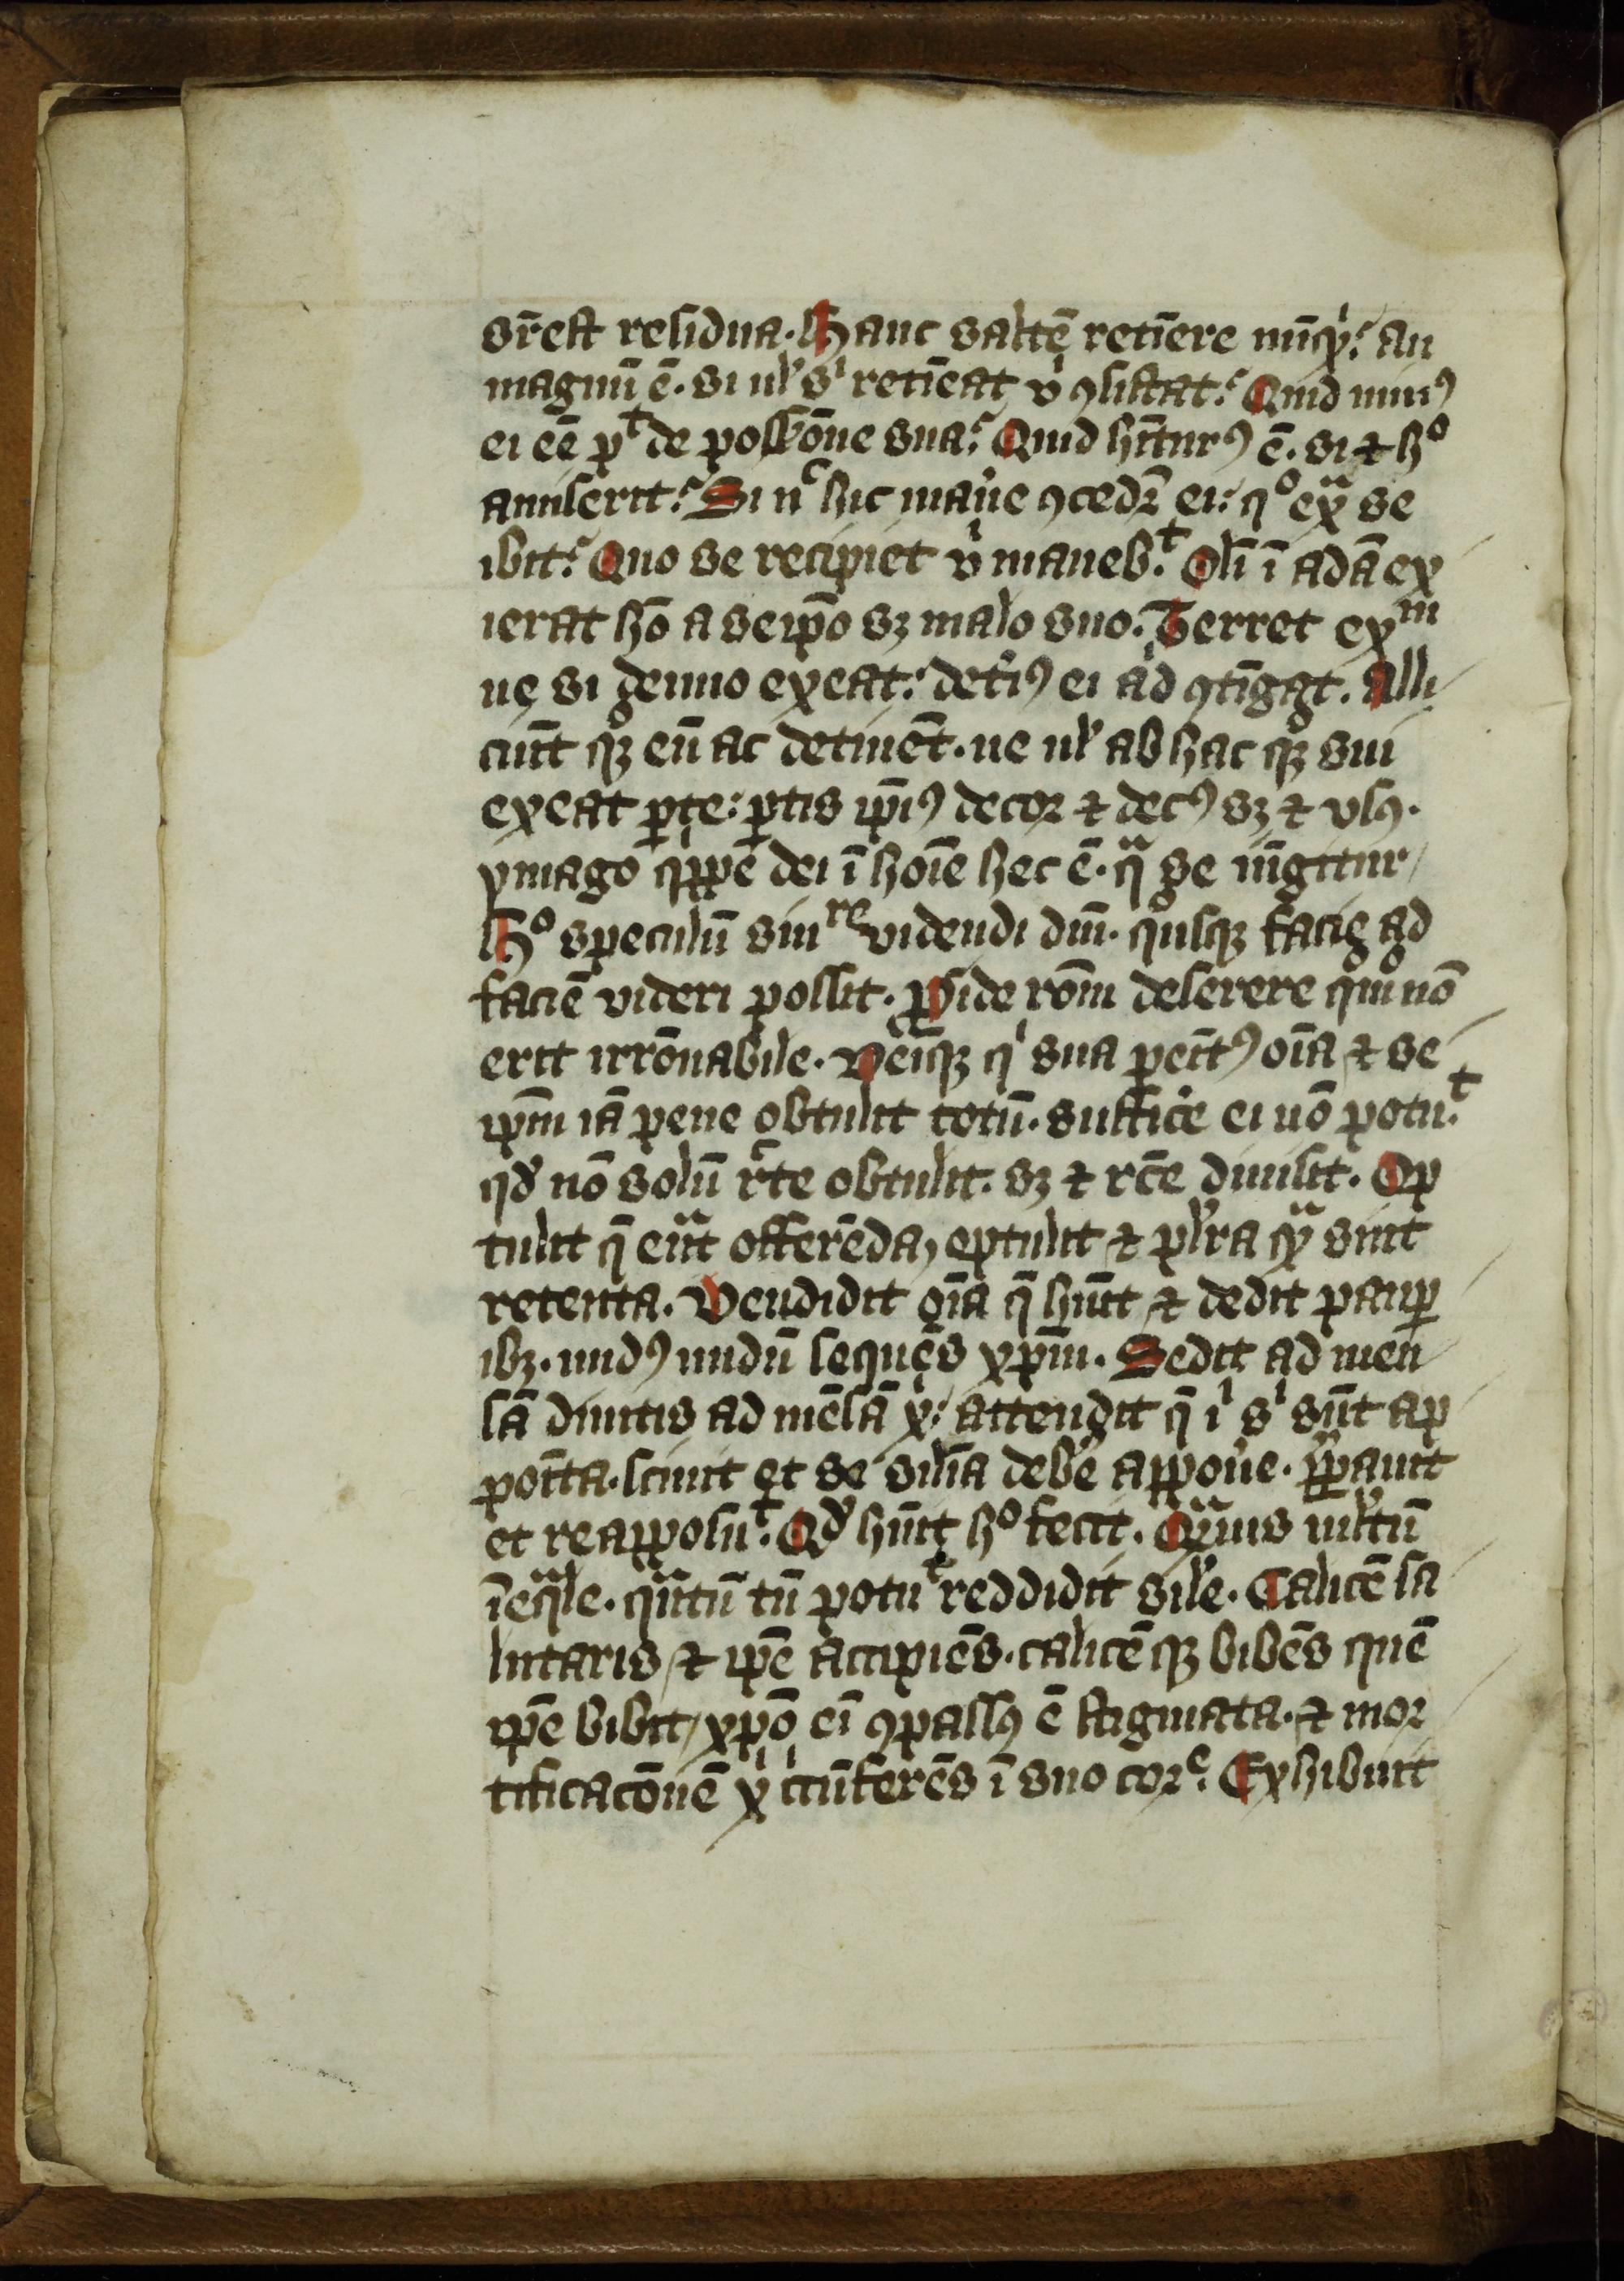 sr̄est residua. Hanc saltē retīere nūq̇ᷓ: an
magnū ē. si ul̓ sⁱ retīeat vⁱ ꝯsistat: Quid minꝰ
ei eē pᵗ de poss̄one sua: Quid hītur9 ē. si ⁊ hº
amiserit: Si nᶜ hic mane̓ ꝯcedr̄ ei: qº exᷓ se
ibit: Quo se recipiet vⁱ maneb.ᵗ Oli ī adā ex
ierat hō a seip̄o sꝫ malo suo. Terret exᵐ
ne si denuo exeat: det̓iꝰ ei aⁱd ꝯtīgat. Alli
ciūt qͦꝫ eū ac detinēt. ne ul̓ ab hac qͦꝫ sui
exeat ꝑte: ꝑtis ip̄iꝰ decor ⁊ decꝰ sꝫ ⁊ vsꝰ.
ymago qⁱppe dei ī hoīe hec ē. qᷓ se īgitur
Hº speculū sinʳᵉ videndi dm̄. qͦusqꝫ facie ad
faciē videri possit. ꝓvide rōm deserere qͦmͦ nō
erit irrōnabile. Deniqꝫ qⁱ sua penitꝰ oīa ⁊ se
ip̄m iā pene obtulit totū. suffice̓ ei nō potu.ᵗ
qd̓ nō solū r̄te obtulit. sꝫ ⁊ r̄ce diuisit. Op
tulit q̄ erāt offerēda, optulit ⁊ pl̓ra qᷓ sint
retenta. Vendidit oīa q̄ hūit ⁊ dedit pauꝑ
ibꝫ. nudꝰ nudū sequēs xp̄m. Sedit ad men
sā diuitis ad mēsā xⁱ: attendit q̄ ī sⁱ sūt ap
poīta. sciuit et se sil̄ia deb̓e appone̓. p̄pauit
et reapposuᵗ. Qd̓ hūit hº fecit. Qᷓuis ml̓tū
īeqᷓle. qᷓntū tn̄ potuᵗ reddidit sil̓e. Calicē sa
lutaris ⁊ ip̄e accipiēs. calicēqꝫ bibēs quē
ip̄e bibit, xp̄o eī ꝯpassꝰ ē stigmata. ⁊ mor
tificacōnē xⁱ cⁱcūferēs ī suo cor.ᵉ Exhibuit